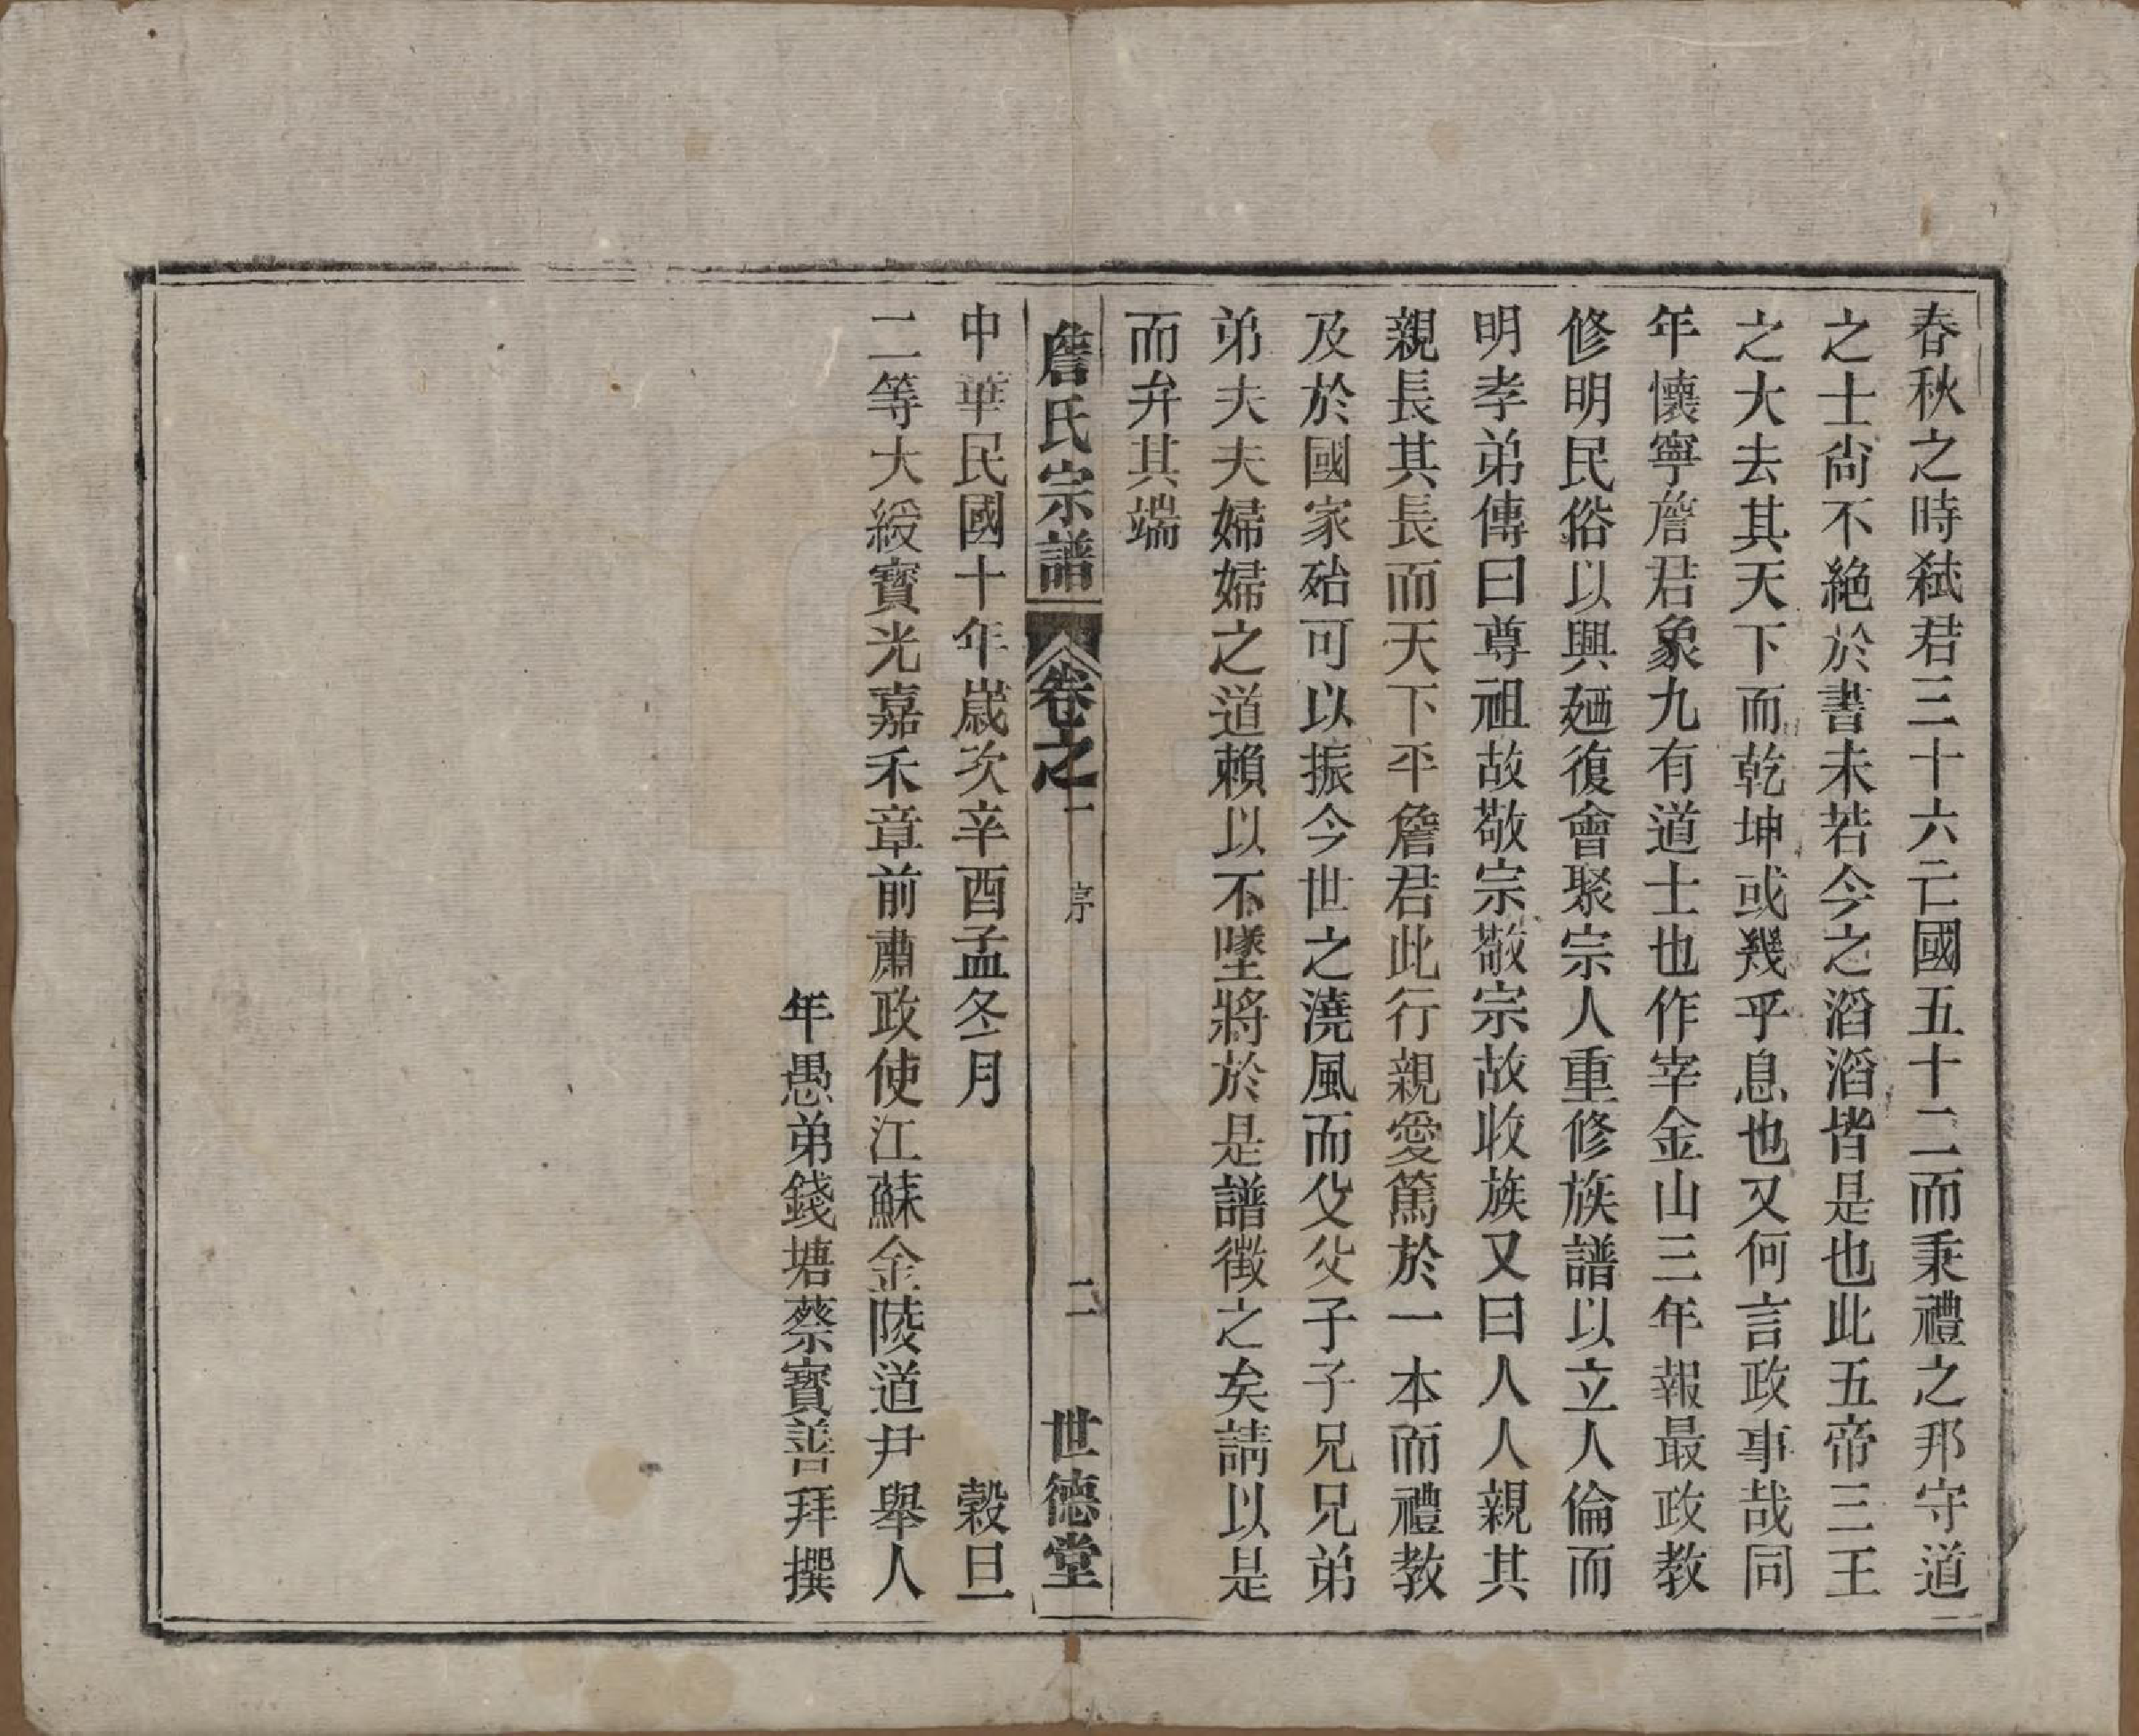 春秋之時弑君三十六亡國五十二而秉禮之邦守道
之士尙不絶於書未若今之滔滔皆是也此五帝三王
之大去其天下而乾坤或幾乎息也又何言政事哉同
年懷寧詹君象九有道士也作宰金山三年報最政教
修明民俗以興廼復會聚宗人重修族譜以立人倫而
明孝弟傳曰尊祖故敬宗敬宗故收族又曰人人親其
親長其長而天下平詹君此行親愛篤於一本而禮教
及於國家殆可以振今世之澆風而父父子子兄兄弟
弟夫夫婦婦之道賴以不墜將於是譜徵之矣請以是
而弁其端
詹氏宗譜 卷之一 序 二 世德堂
中華民國十年歲次辛酉孟冬月 穀旦
二等大綬寶光嘉禾章前肅政使江蘇金陵道尹舉人
年愚弟錢塘蔡寶善拜撰